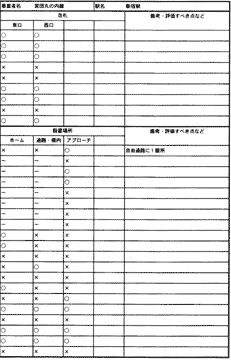 事業者名 営団丸の内線 駅名 新宿駅
改札 備考・評価すべき点など
東口 西口
○ ○
○ ○
○ ○
× ×
× ×
○ ○
○ ○
× ×
○ ○
設置場所 備考・評価すべき点など
ホーム 通路・構内 アプローチ
× × ○ 自由通路に1箇所
－ － ×
－ － ○
－ － ×
－ － ○
－ － ×
－ － ○
－ － ×
○ × ○
○ × ×
× × ×
× ○ ×
× × ×
× × ×
○ × ×
× × ○
○ ○ ○
× × ×
○ ○ ○
○ ○ ○
× × ×